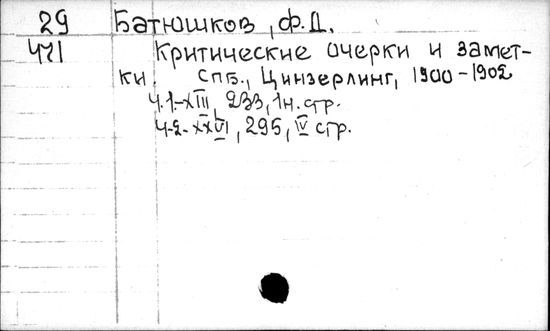 29 Батюшков, Ф.Д.
471 Критические очерки и замет-
ки. СПб., Цинзерлинг, 1900-1902
Ч.1.-XIII, 233, 1н. стр.
Ч-2-XXVI, 295, IV стр.